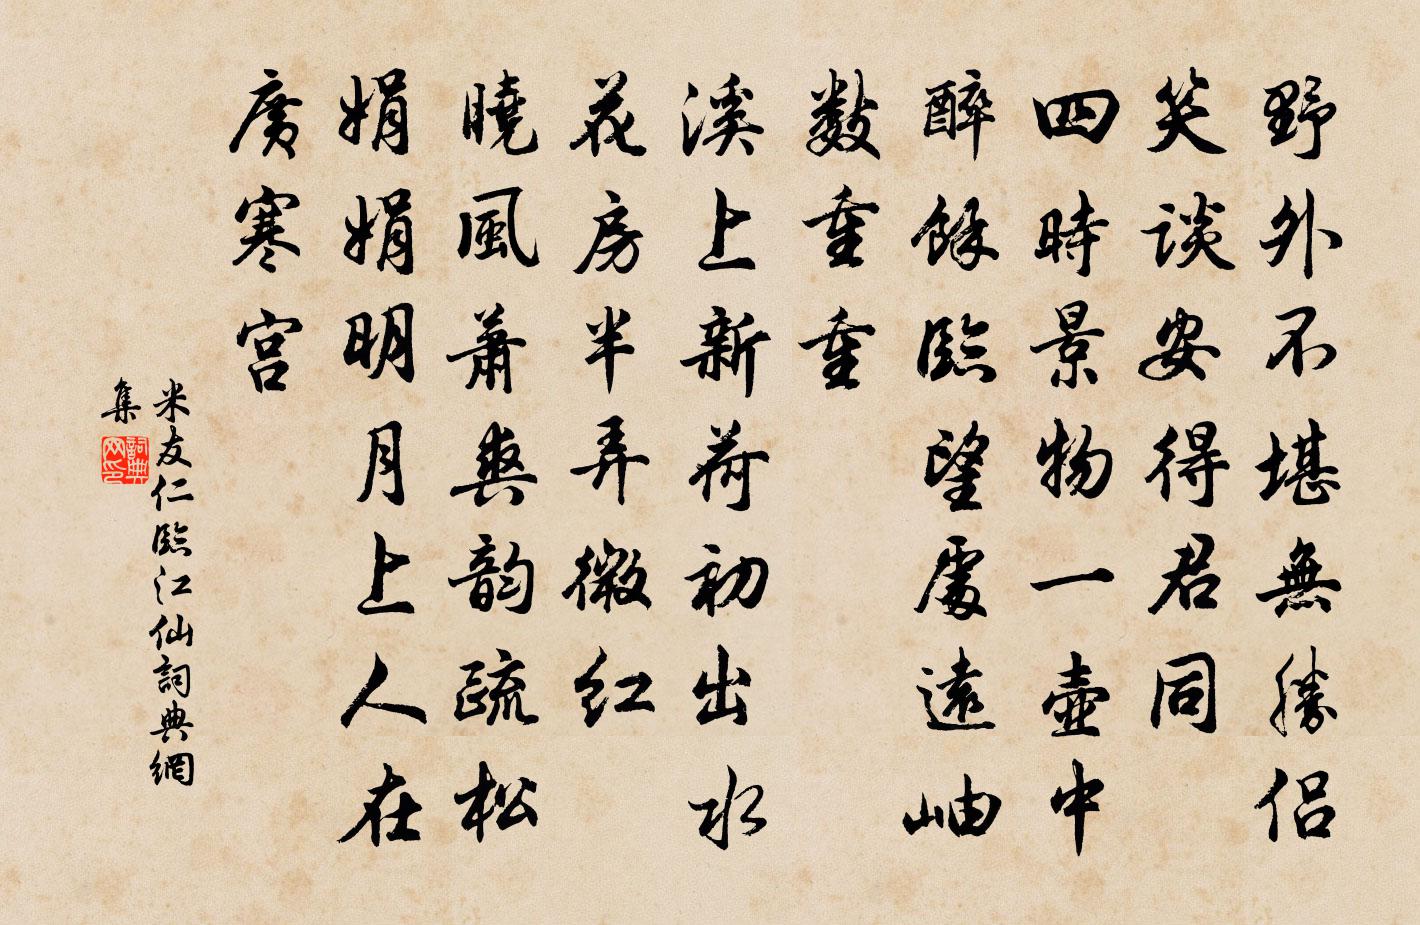 野外不堪無勝侣
笑談安得君同
四時景物一壶中
醉餘臨望處遠岫
數重重
溪上新荷初出水
花房半弄微红
曉風蕭爽韵疏松
娟娟明月上人在
廣寒宫
米友仁臨江仙詞典網
集
詞典网印